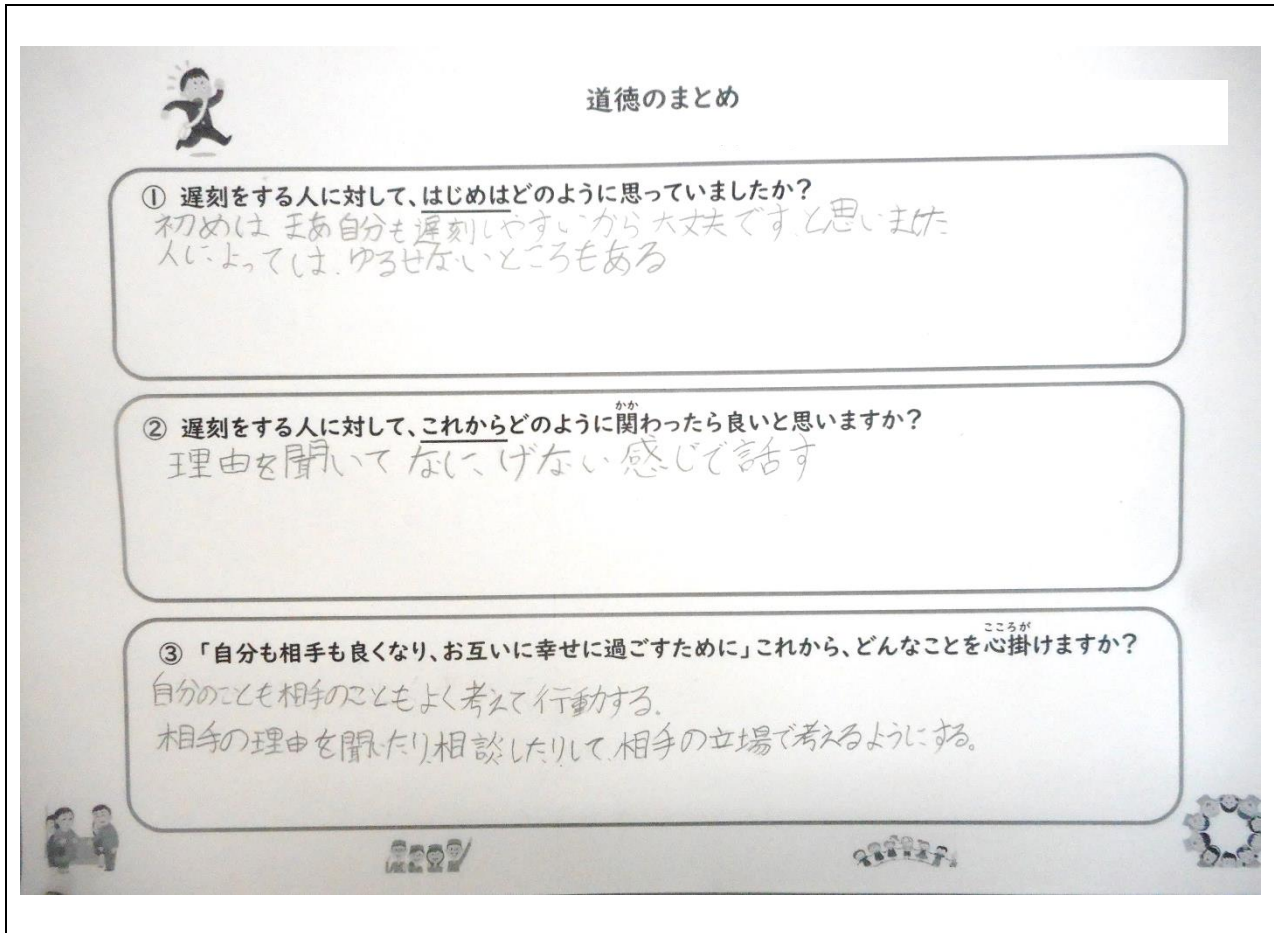 道徳のまとめ
① 遅刻をする人に対して、はじめはどのように思っていましたか？
初めは まあ自分も遅刻しやすいから大丈夫です と思いました
人によっては、ゆるせないところもある
かか
② 遅刻をする人に対して、これからどのように関わったら良いと思いますか？
理由を聞いて なにげない感じで話す
こころが
③ 「自分も相手も良くなり、お互いに幸せに過ごすために」これから、どんなことを心掛けますか？
自分のことも相手のこともよく考えて行動する。
相手の理由を聞いたり、相談したりして、相手の立場で考えるようにする。